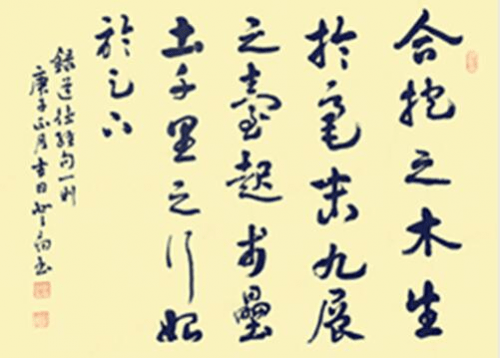 合抱之木生
於毫末九层
之臺起於壘
土千里之行始
於足下
録道德經句一則
庚子正月吉日书